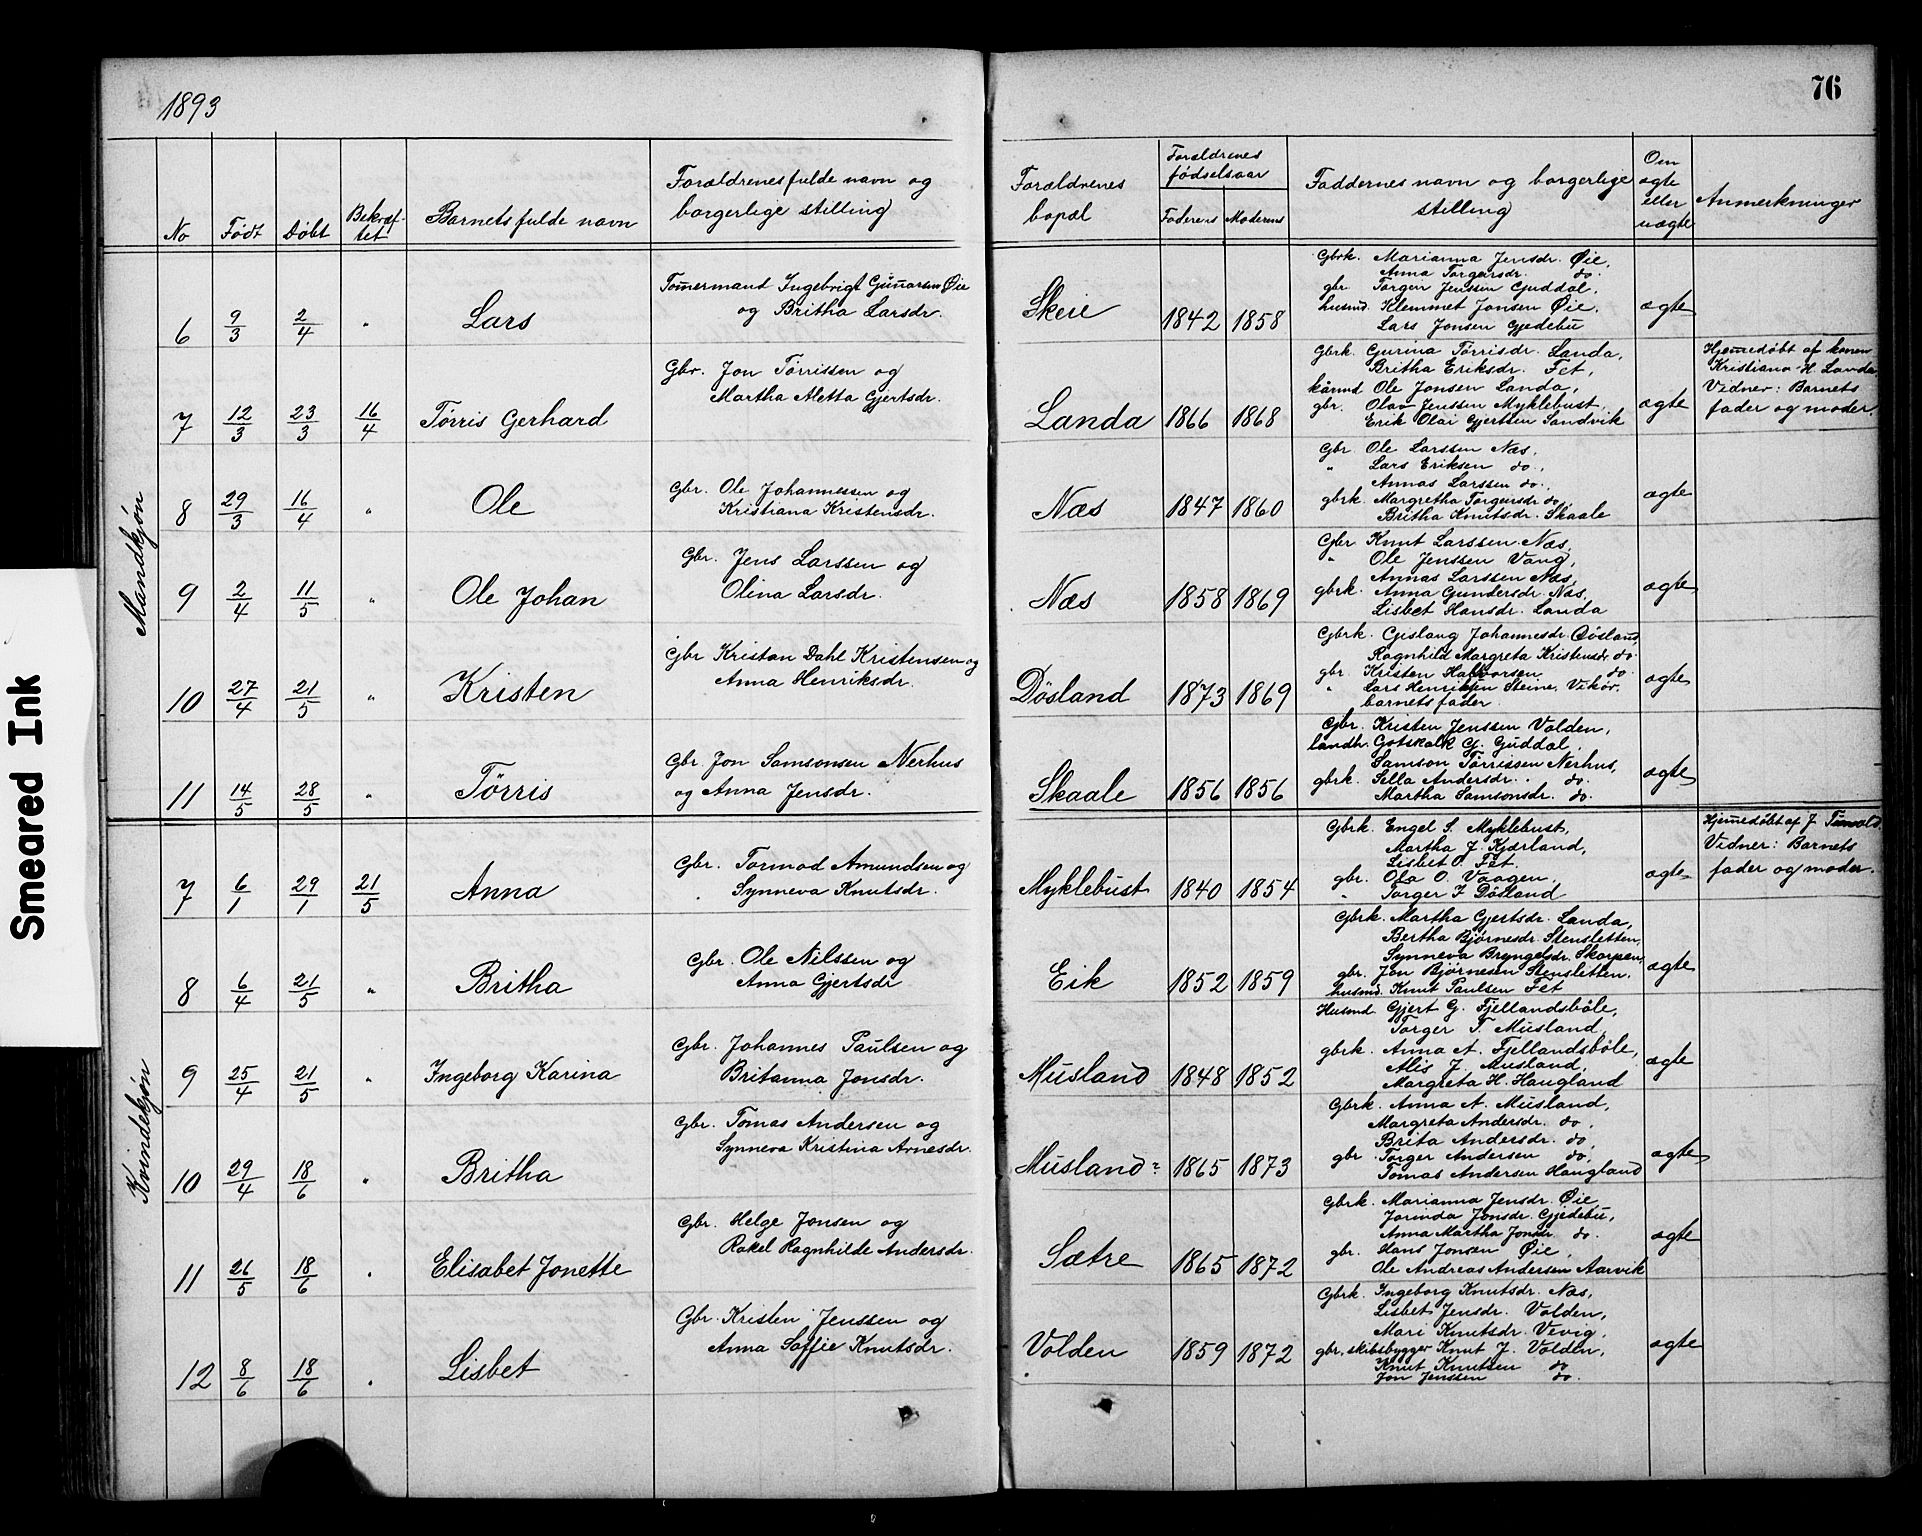 1893
76
No
Født
Døbt
Bekræf-
tet
Barnets fulde navn
Forældrenes fulde navn og
borgerlige stilling
Forældrenes
bopæl
Forældrenes
fødselsaar
Faderens
Moderens
Faddernes navn og borgerlige
stilling
Om
ægte
eller
uægte
Anmerkninger
Mandkjøn
6 9/3 2/4 " Lars
Tømermand Ingebrigt Gunarsen Øie
og Britha Larsdr.
Skeie 1842 1858
Gbrk. Marianna Jensdr. Øie,
Anna Torgersdr. do.
gbr Torger Jenssen Guddal,
husmd. Klemmet Jonsen Øie,
Lars Jonsen Gjedebu
ægte
7 12/3 23/3 16/4 Tørris Gerhard
Gbr. Jon Tørrissen og
Martha Aletta Gjertsdr.
Landa 1866 1868
Gbrk. Gurina Tørrisdr. Landa,
Britha Eriksdr. Fet,
kårmd Ole Jonsen Landa,
gbr. Olav Jenssen Myklebust,
Erik Olai Gjertsen Sandvik
ægte
Hjemedøbt af konen
Kristiana H. Landa
Vidner: Barnets
fader og moder.
8 29/3 16/4 " Ole
Gbr. Ole Johannessen og
Kristiana Kristensdr.
Næs 1847 1860
Gbr Ole Larssen Næs,
" Lars Eriksen do.,
Annas Larssen do.,
gbrk. Margretha Torgersdr do.,
Britha Knutsdr. Skaale
ægte
9 2/4 11/5 " Ole Johan
Gbr. Jens Larssen og
Olina Larsdr.
Næs 1858 1869
Gbr Knut Larssen Næs,
" Ole Jenssen Vang,
Annas Larssen Næs,
gbrk. Anna Gundersdr. Næs,
Lisbet Hansdr. Landa
ægte
10 27/4 21/5 " Kristen
Gbr Kristan Dahl Kristensen og
Anna Henriksdr.
Døsland 1873 1869
Gbrk. Gislaug Johannesdr. Døsland,
Ragnhild Margreta Kristensdr. do
gbr. Kristen Halvorsen do.
" Lars Henriksen Steine, Vikør,
barnets fader.
ægte
11 14/5 28/5 " Tørris
Gbr. Jon Samsonsen Nerhus
og Anna Jensdr.
Skaale 1856 1856
Gbr. Kristen Jenssen Valden,
landh. Gotskalk G. Guddal,
Samson Tørrissen Nerhus,
gbrk. Silla Andersdr. do.
Martha Samsonsdr. do.
ægte
Kvindekjøn
7 6/1 29/1 21/5 Anna
Gbr. Tormod Amundsen og
Synneva Knutsdr.
Myklebust 1840 1854
Gbrk. Engel S. Myklebust,
Martha J. Kjærland,
Lisbet O. Fet
gbr. Ola O. Vaagen,
" Torger J Døsland
ægte
Hjemedøbt af J Tunold
Vidner: Barnets
fader og moder.
8 6/4 21/5 " Britha
Gbr. Ole Nilssen og
Anna Gjertsdr
Eik 1852 1859
Gbrk. Martha Gjertsdr. Landa,
Bertha Bjørnesdr. Stensletten,
Synneva Bryngelsdr. Skorpen,
gbr. Jon Bjørnesen Stensletten,
husmd. Knut Paulsen Fet
ægte
9 25/4 21/5 " Ingeborg Karina
Gbr. Johannes Paulsen og
Britanna Jonsdr.
Musland 1848 1852
Husmd Gjert G. Fjellandsbøle,
Torger T. Musland,
gbrk. Anna A. Fjellandsbøle,
Alis J. Musland,
Margreta H. Haugland
ægte
10 29/4 18/6 " Britha
Gbr. Tomas Andersen og
Synneva Kristina Arnesdr.
Musland 1865 1873
Gbrk. Anna A. Musland,
Margreta Andersdr. do,
Brita Andersdr. do,
gbr. Torger Andersen do,
Tomas Andersen Haugland
ægte
11 26/5 18/6 " Elisabet Jonette
Gbr. Helge Jonsen og
Rakel Ragnhilde Andersdr.
Sætre 1865 1872
Gbrk. Marianna Jensdr. Øie
Jorinda Jonsdr. Gjedebu,
Anna Martha Jonsdr. do.
gbr. Hans Jonsen Øie,
Ole Andreas Andersen Aarvik
ægte
12 8/6 18/6 " Lisbet
Gbr. Kristen Jenssen og
Anna Soffie Knutsdr.
Valden 1859 1872
Gbrk. Ingeborg Knutsdr. Næs,
Lisbet Jensdr. Valden,
Mari Knutsdr. Vevig,
gbr. skibsbygger Knut J. Valden,
Knut Knutsen do
Jon Jenssen do.
ægte
Smeared Ink